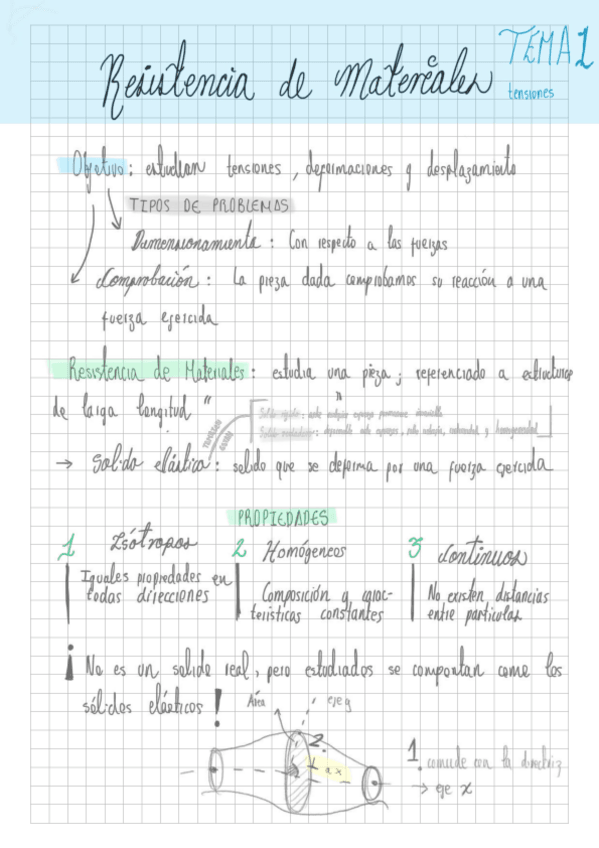 Resistencia de Materiales
TEMA 1
tensiones
Objetivo: estudian tensiones, deformaciones y desplazamiento
TIPOS DE PROBLEMAS
Dimensionamiento: Con respecto a las fuerzas
Comprobación: La pieza dada comprobamos su reacción a una
fuerza ejercida
Resistencia de Materiales: estudia una pieza; referenciado a estructuras
de larga longitud " "
→ Solido elástico: solido que se deforma por una fuerza ejercida
PROPIEDADES
1 Isótropos
Iguales propiedades en
todas direcciones
2 Homógeneos
Composición y carac-
teristicas constantes
3 Continuos
No existen distancias
entre particulas
¡No es un solido real, pero estudiados se comportan como los
sólidos elásticos!
Área
eje y
2.
1. coincide con la directriz
→ eje x